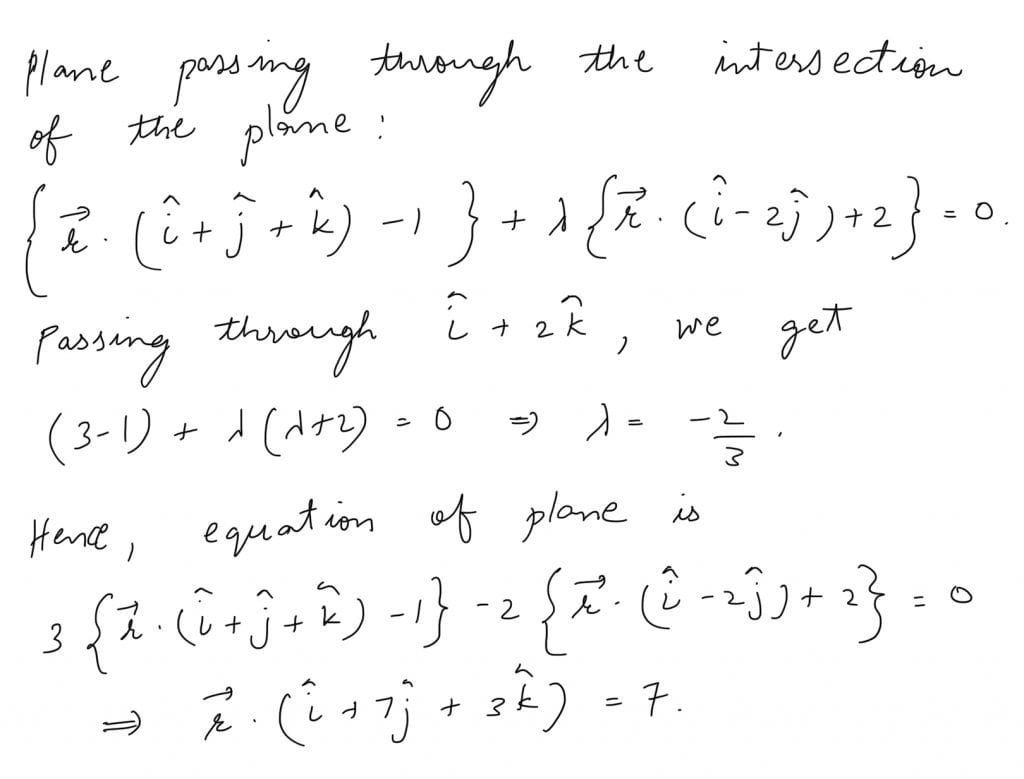 Plane passing through the intersection
of the plane :
{ r⃗ · (î + ĵ + k̂) - 1 } + λ { r⃗ · (î - 2ĵ) + 2 } = 0.
Passing through î + 2k̂, we get
(3-1) + λ(λ+2) = 0 ⇒ λ = -2/3.
Hence, equation of plane is
3 { r⃗ · (î + ĵ + k̂) - 1 } - 2 { r⃗ · (î - 2ĵ) + 2 } = 0
⇒ r⃗ · (î + 7ĵ + 3k̂) = 7.